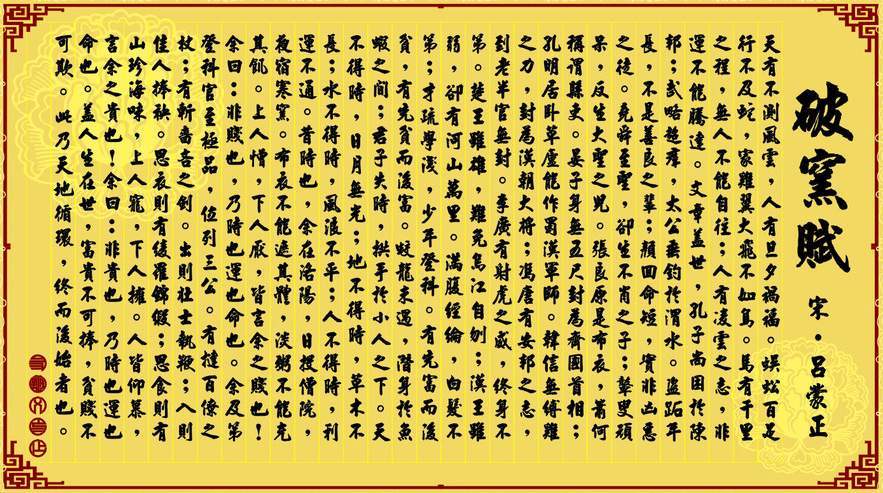 破窯賦
宋·呂蒙正
天有不測風雲，人有旦夕禍福。蜈蚣百足
行不及蛇，家雞翼大飛不如鳥。馬有千里
之程，無人不能自往；人有凌雲之志，非
運不能騰達。文章蓋世，孔子尚困於陳
邦；武略超羣，太公垂釣於渭水。盜跖年
長，不是善良之輩；顏回命短，實非凶惡
之徒。堯舜至聖，卻生不肖之子；瞽叟頑
呆，反生大聖之兒。張良原是布衣，蕭何
稱謂縣吏。晏子身無五尺封為齊國首相；
孔明居卧草廬能作蜀漢軍師。韓信無縛雞
之力，封為漢朝大將；馮唐有安邦之志，
到老半官無封。李廣有射虎之威，終身不
第。楚王雖雄，難免烏江自刎；漢王雖
弱，卻有河山萬里。滿腹經綸，白髮不
第；才疏學淺，少年登科。有先富而後
貧，有先貧而後富。蛟龍未遇，潛身於魚
蝦之間；君子失時，拱手於小人之下。天
不得時，日月無光；地不得時，草木不
長；水不得時，風浪不平；人不得時，利
運不通。昔時也，余在洛陽，日投僧院，
夜宿寒窯。布衣不能遮其體，淡粥不能充
其飢。上人憎，下人厭，皆言余之賤也！
余曰：非賤也，乃時也運也命也。余及第
登科官至極品，位列三公。有撻百僚之
杖；有斬嗇吝之劍。出則壯士執鞭；入則
佳人捧秧。思衣則有綾羅錦緞；思食則有
山珍海味，上人寵，下人擁。人皆仰慕，
言余之貴也！余曰：非貴也，乃時也運也
命也。蓋人生在世，富貴不可捧，貧賤不
可欺。此乃天地循環，終而後始者也。